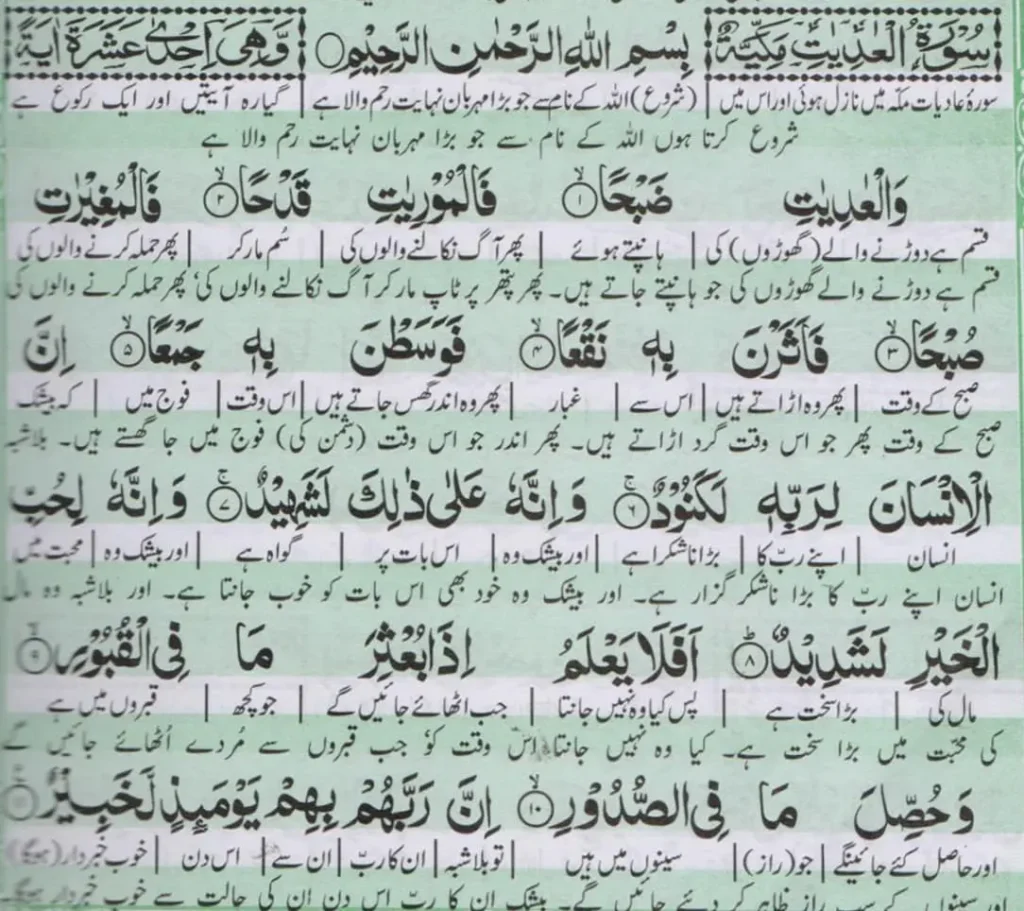 سُوۡرَةُ الۡعٰدِيٰتِ مَكِّيَّةٌ بِسۡمِ اللهِ الرَّحۡمٰنِ الرَّحِيۡمِ وَّهِىَ اِحۡدٰى عَشَرَةَ اٰيَةً
سورۂ عادیات مکہ میں نازل ہوئی اور اس میں | (شروع) اللہ کے نام سے جو بڑا مہربان نہایت رحم والا ہے | گیارہ آیتیں اور ایک رکوع ہے
شروع کرتا ہوں اللہ کے نام سے جو بڑا مہربان نہایت رحم والا ہے
وَالۡعٰدِيٰتِ ضَبۡحًا ۙ‏﴿۱﴾ فَالۡمُوۡرِيٰتِ قَدۡحًا ۙ‏﴿۲﴾ فَالۡمُغِيۡرٰتِ
قسم ہے دوڑنے والے (گھوڑوں) کی | ہانپتے ہوئے | پھر آگ نکالنے والوں کی | سُم مار کر | پھر حملہ کرنے والوں کی
قسم ہے دوڑنے والے گھوڑوں کی جو ہانپتے جاتے ہیں۔ پھر پتھر پر ٹاپ مار کر آگ نکالنے والوں کی‘ پھر حملہ کرنے والوں کی
صُبۡحًا ۙ‏﴿۳﴾ فَاَثَرۡنَ بِهٖ نَقۡعًا ۙ‏﴿۴﴾ فَوَسَطۡنَ بِهٖ جَمۡعًا ۙ‏﴿۵﴾ اِنَّ
صبح کے وقت | پھر وہ اڑاتے ہیں | اس سے | غبار | پھر وہ اندر گھس جاتے ہیں | اس وقت | فوج میں | کہ بیشک
صبح کے وقت پھر جو اس وقت گرد اڑاتے ہیں۔ پھر اندر جو اس وقت (دشمن کی) فوج میں جا گھستے ہیں۔ بلاشبہ
الۡاِنۡسَانَ لِرَبِّهٖ لَـكَنُوۡدٌ ۚ‏﴿۶﴾ وَاِنَّهٗ عَلٰى ذٰلِكَ لَشَهِيۡدٌ ۚ‏﴿۷﴾ وَاِنَّهٗ لِحُبِّ
انسان | اپنے ربّ کا | بڑا ناشکرا ہے | اور بیشک وہ | اس بات پر | گواہ ہے | اور بیشک وہ | محبت میں
انسان اپنے ربّ کا بڑا ناشکر گزار ہے۔ اور بیشک وہ خود بھی اس بات کو خوب جانتا ہے۔ اور بلاشبہ وہ مال
الۡخَيۡرِ لَشَدِيۡدٌ ؕ‏﴿۸﴾ اَفَلَا يَعۡلَمُ اِذَا بُعۡثِرَ مَا فِى الۡقُبُوۡرِ ۙ‏﴿۹﴾
مال کی | بڑا سخت ہے | پس کیا وہ نہیں جانتا | جب اٹھائے جائیں گے | جو کچھ | قبروں میں ہے
کی محبّت میں بڑا سخت ہے۔ کیا وہ نہیں جانتا اس وقت کو جب قبروں سے مُردے اُٹھائے جائیں گے
وَحُصِّلَ مَا فِى الصُّدُوۡرِ ۙ‏﴿۱۰﴾ اِنَّ رَبَّهُمۡ بِهِمۡ يَوۡمَٮِٕذٍ لَّخَبِيۡرٌ ﴿۱۱﴾
اور حاصل کئے جائینگے | جو (راز) | سینوں میں ہیں | تو بلاشبہ | ان کا ربّ | ان سے | اس دن | خوب خبردار (ہوگا)
اور سینوں کے سب راز ظاہر کر دئے جائیں گے۔ بیشک ان کا ربّ اس دن ان کی حالت سے خوب خبردار ہوگا۔